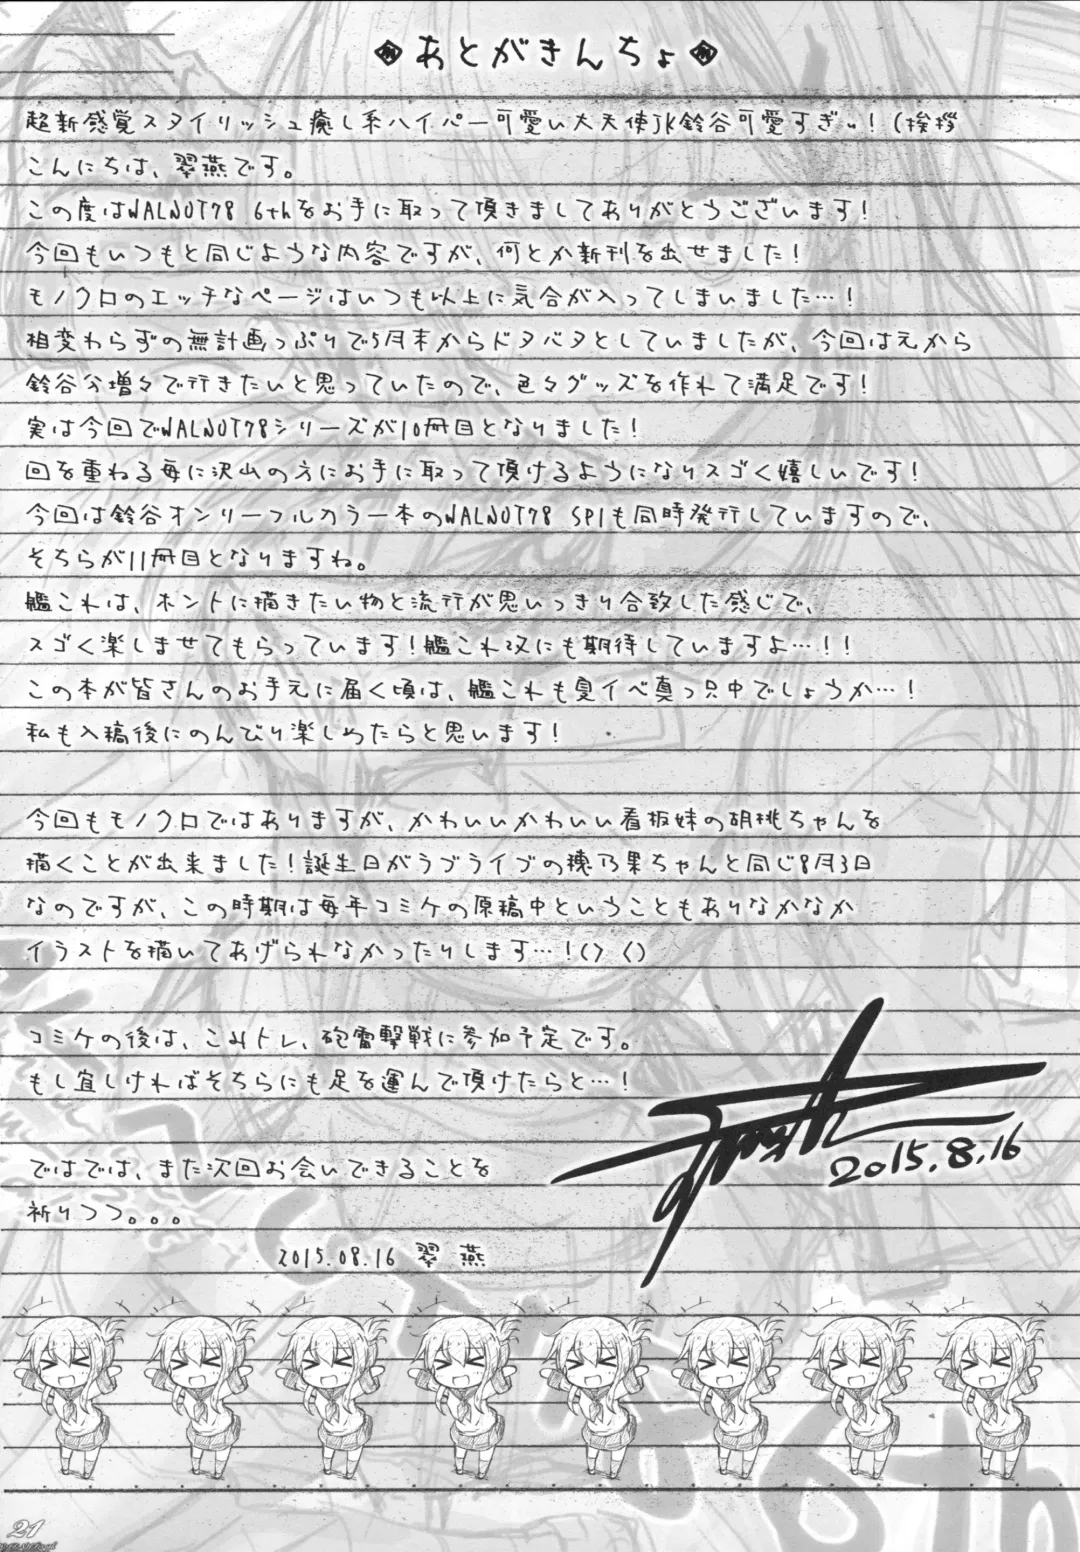 ◈あとがきんちょ◈
超新感覚スタイリッシュ癒し系ハイパー可愛い大天使JK鈴谷可愛すぎぃ!(挨拶
こんにちは、翠燕です。
この度はWALNOT78 6thをお手に取って頂きましてありがとうございます!
今回もいつもと同じような内容ですが、何とか新刊を出せました!
モノクロのエッチなページはいつも以上に気合が入ってしまいました…!
相変わらずの無計画っぷりで5月末からドタバタとしていましたが、今回は元から
鈴谷分増々で行きたいと思っていたので、色々グッズを作れて満足です!
実は今回でWALNOT78シリーズが10冊目となりました!
回を重ねる毎に沢山の方にお手に取って頂けるようになりスゴく嬉しいです!
今回は鈴谷オンリーフルカラー本のWALNOT78 SP1も同時発行していますので、
そちらが11冊目となりますね。
艦これは、ホントに描きたい物と流行が思いっきり合致した感じで、
スゴく楽しませてもらっています!艦これ改にも期待していますよ…!!
この本が皆さんのお手元に届く頃は、艦これも夏イベ真っ只中でしょうか…!
私も入稿後にのんびり楽しめたらと思います!
今回もモノクロではありますが、かわいいかわいい看板妹の胡桃ちゃんを
描くことが出来ました!誕生日がラブライブの穂乃果ちゃんと同じ8月3日
なのですが、この時期は毎年コミケの原稿中ということもありなかなか
イラストを描いてあげられなかったりします…!() ()
コミケの後は、こみトレ、砲雷撃戦に参加予定です。
もし宜しければそちらにも足を運んで頂けたらと…!
2015.8.16
ではでは、また次回お会いできることを
祈りつつ。。。
2015.08.16 翠 燕
21